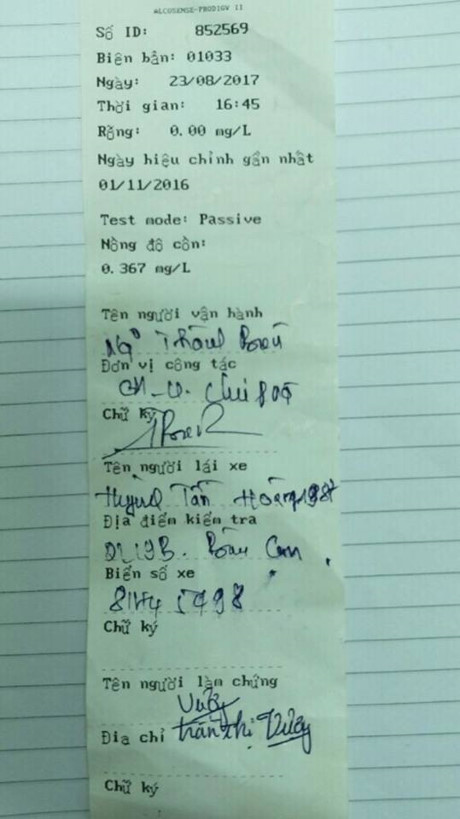 ALCOSENSE-PRODIGY II
Số ID: 852569
Biên bản: 01033
Ngày: 23/08/2017
Thời gian: 16:45
Rỗng: 0.00 mg/L
Ngày hiệu chỉnh gần nhất
01/11/2016
Test mode: Passive
Nồng độ cồn:
0.367 mg/L
Tên người vận hành
Ngô Thành
Đơn vị công tác
Chữ ký
Tên người lái xe
Huỳnh Tấn Hoàng 1987
Địa điểm kiểm tra
QL19B. Bàu Cạn
Biển số xe
81H4 5498
Chữ ký
Tên người làm chứng
Địa chỉ Trần Thị
Chữ ký